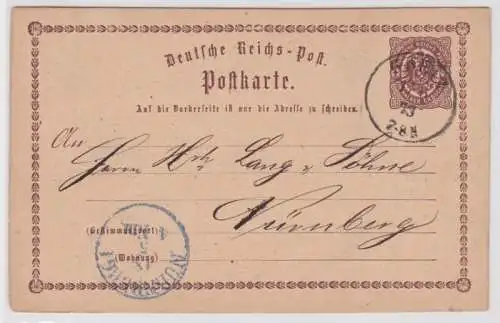 Deutsche Reichs-Post.
Postkarte.
Auf die Vorderseite ist nur die Adresse zu schreiben.
An
Herrn Lang & Söhne
Nürnberg
(Bestimmungsort)
(Wohnung)
73
7-8 N